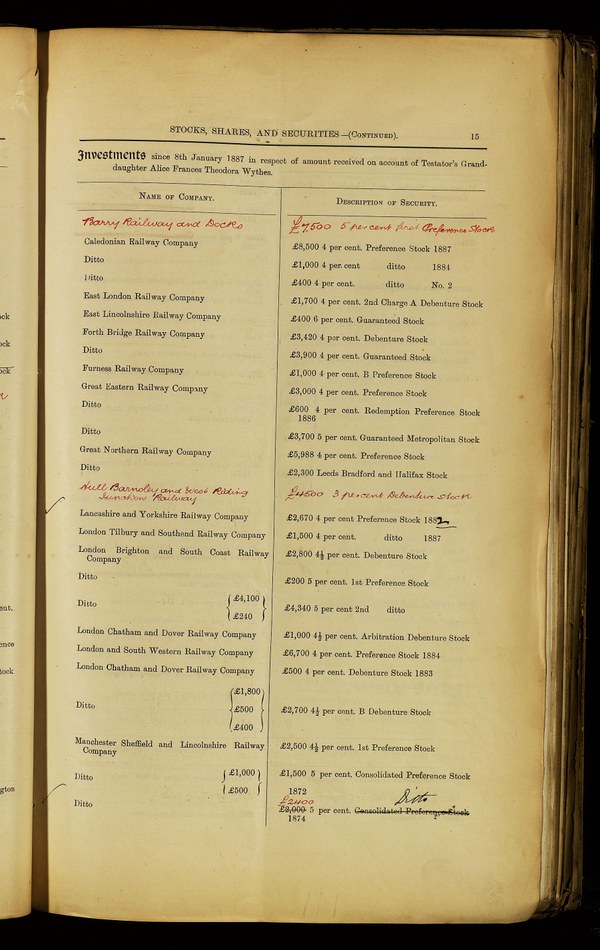 STOCKS, SHARES, AND SECURITIES—(CONTINUED). 15
Investments since 8th January 1887 in respect of amount received on account of Testator's Grand-
daughter Alice Frances Theodora Wythes.
NAME OF COMPANY. DESCRIPTION OF SECURITY.
Barry Railway and Docks £7,500 5 per cent first Preference Stock
Caledonian Railway Company £8,500 4 per cent. Preference Stock 1887
Ditto £1,000 4 per cent ditto 1884
Ditto £400 4 per cent. ditto No. 2
East London Railway Company £1,700 4 per cent. 2nd Charge A Debenture Stock
East Lincolnshire Railway Company £400 6 per cent. Guaranteed Stock
Forth Bridge Railway Company £3,420 4 per cent. Debenture Stock
Ditto £3,900 4 per cent. Guaranteed Stock
Furness Railway Company £1,000 4 per cent. B Preference Stock
Great Eastern Railway Company £3,000 4 per cent. Preference Stock
Ditto £600 4 per cent. Redemption Preference Stock
1886
Ditto £3,700 5 per cent. Guaranteed Metropolitan Stock
Great Northern Railway Company £5,988 4 per cent. Preference Stock
Ditto £2,300 Leeds Bradford and Halifax Stock
Hull Barnsley and West Riding £4500 3 per cent Debenture Stock
Junction Railway
Lancashire and Yorkshire Railway Company £2,670 4 per cent Preference Stock 1882
London Tilbury and Southend Railway Company £1,500 4 per cent. ditto 1887
London Brighton and South Coast Railway £2,800 4½ per cent. Debenture Stock
Company
Ditto £200 5 per cent. 1st Preference Stock
Ditto £4,100 £4,340 5 per cent 2nd ditto
£240
London Chatham and Dover Railway Company £1,000 4½ per cent. Arbitration Debenture Stock
London and South Western Railway Company £6,700 4 per cent. Preference Stock 1884
London Chatham and Dover Railway Company £500 4 per cent. Debenture Stock 1883
£1,800
Ditto £500 £2,700 4½ per cent. B Debenture Stock
£400
Manchester Sheffield and Lincolnshire Railway £2,500 4½ per cent. 1st Preference Stock
Company
Ditto £1,000 £1,500 5 per cent. Consolidated Preference Stock
£500 1872
£2400 Ditto
Ditto £2,000 5 per cent. Consolidated Preference Stock
1874